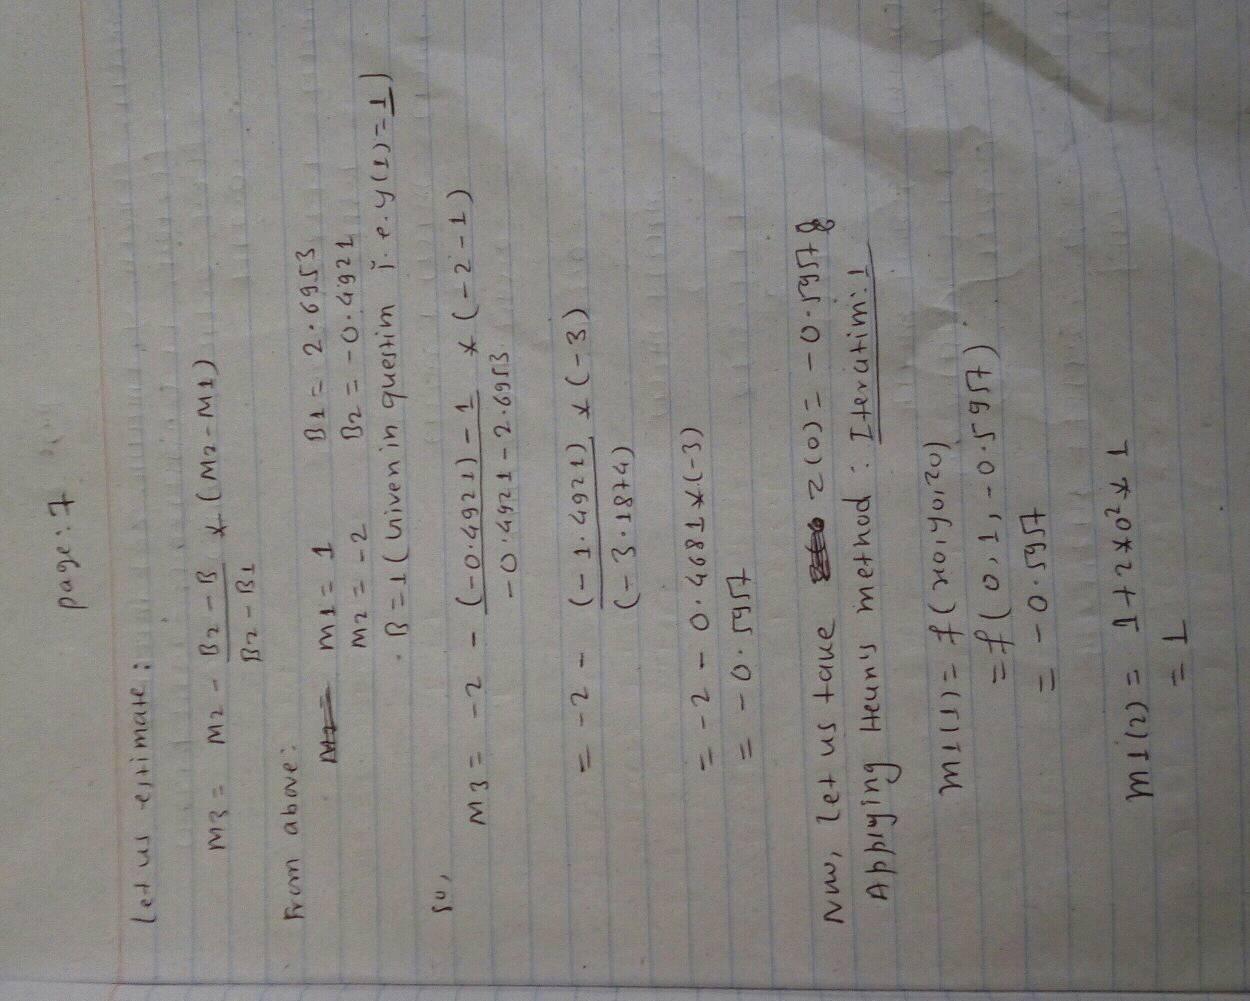 page: 7
Let us estimate:
M3 = M2 - B2 - B / B2 - B1 * (M2 - M1)
From above:
M1 = 1 B1 = 2.6953
M2 = -2 B2 = -0.4921
B = 1 (Given in question i.e. y(1) = 1)
So,
M3 = -2 - (-0.4921) - 1 / -0.4921 - 2.6953 * (-2 - 1)
= -2 - (-1.4921) / (-3.1874) * (-3)
= -2 - 0.4681 * (-3)
= -0.5957
Now, Let us take z(0) = -0.5957 &
Applying Heun's method: Iteration: 1
m1(1) = f(x0, y0, z0)
= f(0, 1, -0.5957)
= -0.5957
m1(2) = 1 + 2 * 0² * 1
= 1